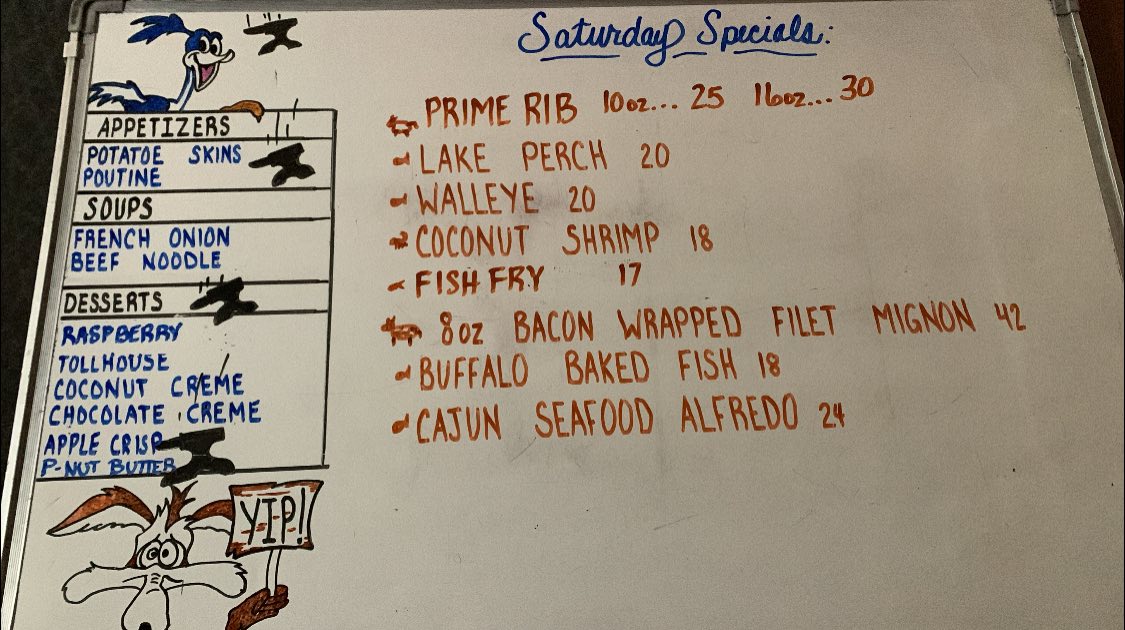 Saturday Specials:
APPETIZERS
POTATOE SKINS
POUTINE
SOUPS
FRENCH ONION
BEEF NOODLE
DESSERTS
RASPBERRY
TOLLHOUSE
COCONUT CREME
CHOCOLATE CREME
APPLE CRISP
P-NUT BUTTER
YIP!
PRIME RIB 10oz... 25 16oz... 30
LAKE PERCH 20
WALLEYE 20
COCONUT SHRIMP 18
FISH FRY 17
8oz BACON WRAPPED FILET MIGNON 42
BUFFALO BAKED FISH 18
CAJUN SEAFOOD ALFREDO 24